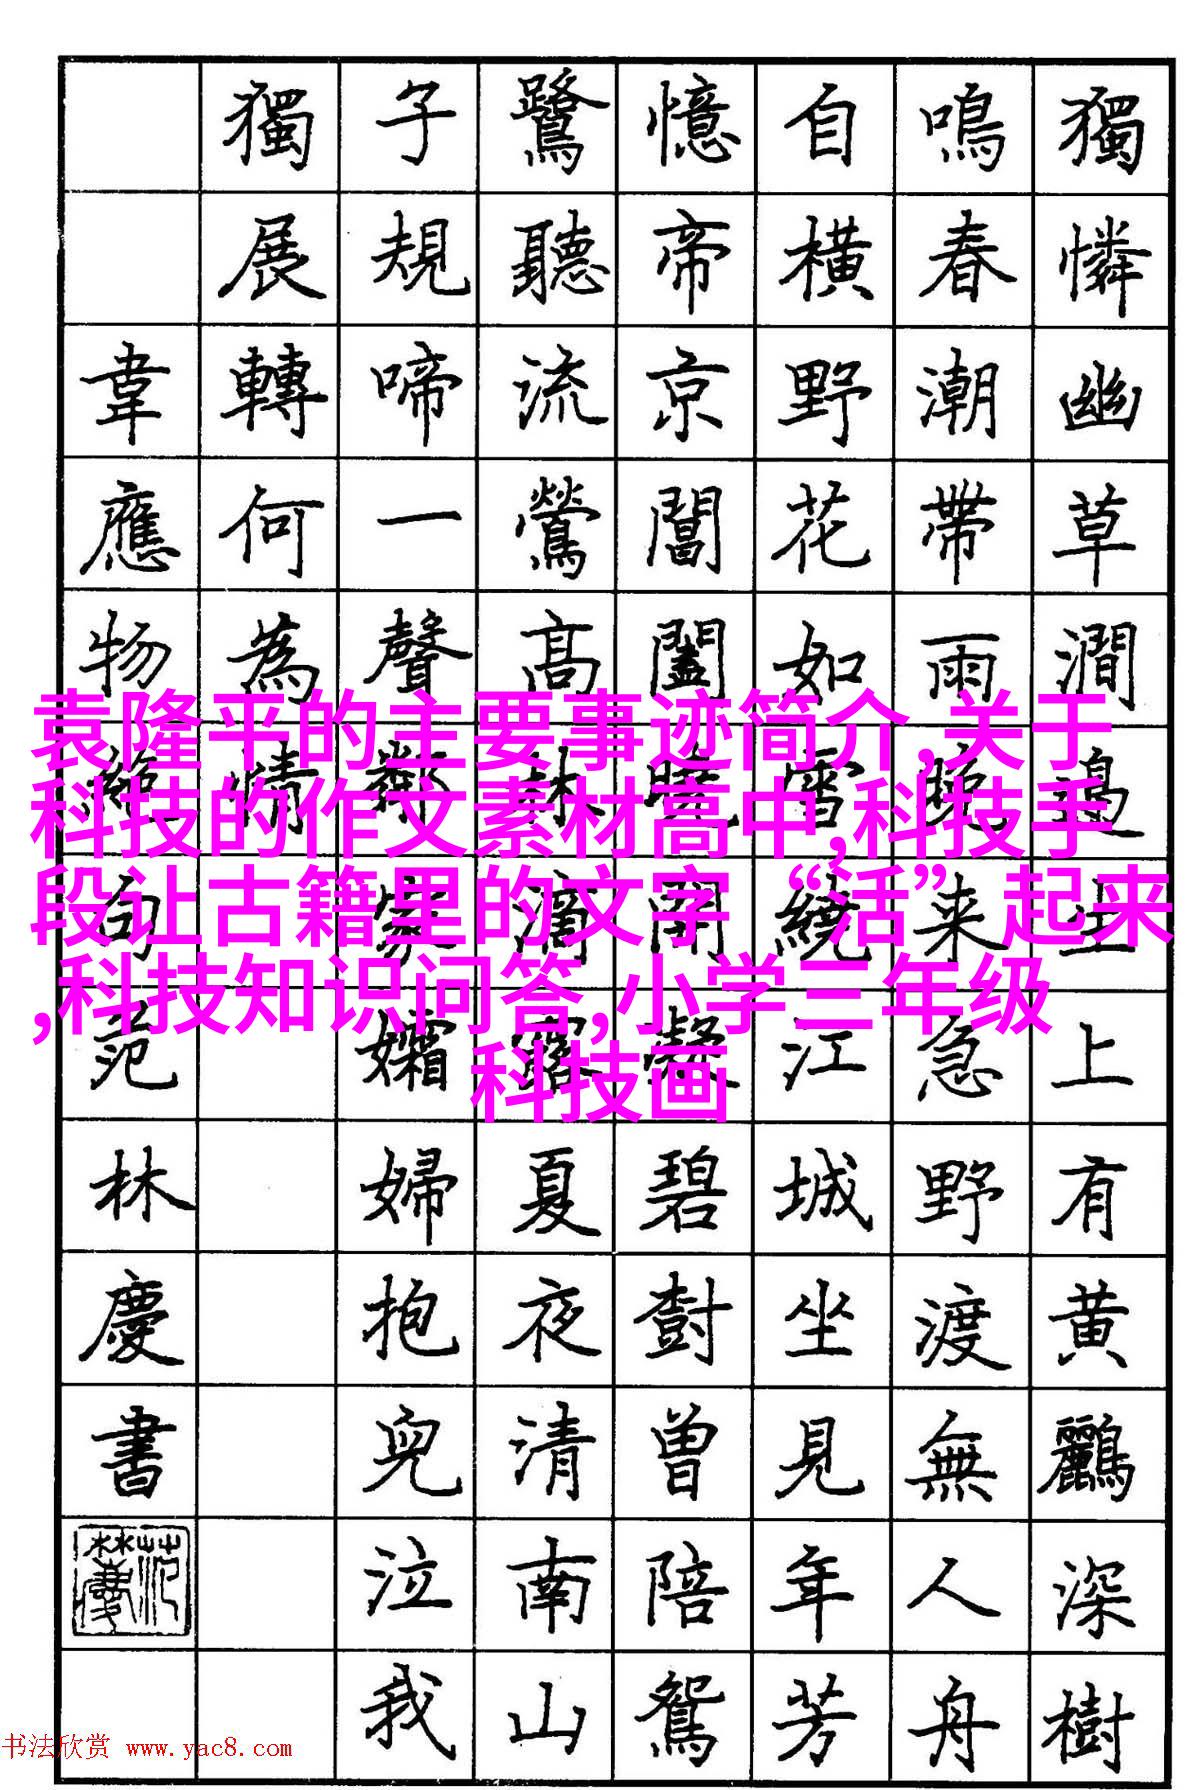 獨憐幽草澗邊生上有黄鸝深樹
鳴春潮帶雨晚来急野渡無人舟
自橫野花如雪繞江城坐見年芳
憶帝京閶闔曉開凝碧樹曾陪鴛
鷺聽流鶯高林滴露夏夜清南山
子規啼一聲鄰家孀婦抱兒泣我
獨展轉何為情
韋應物絶句范林慶書
袁隆平的主要事迹简介,关于
科技的作文素材高中,科技手
段让古籍里的文字“活”起来
,科技知识问答,小学三年级
科技画
书法欣赏 www.yac8.com